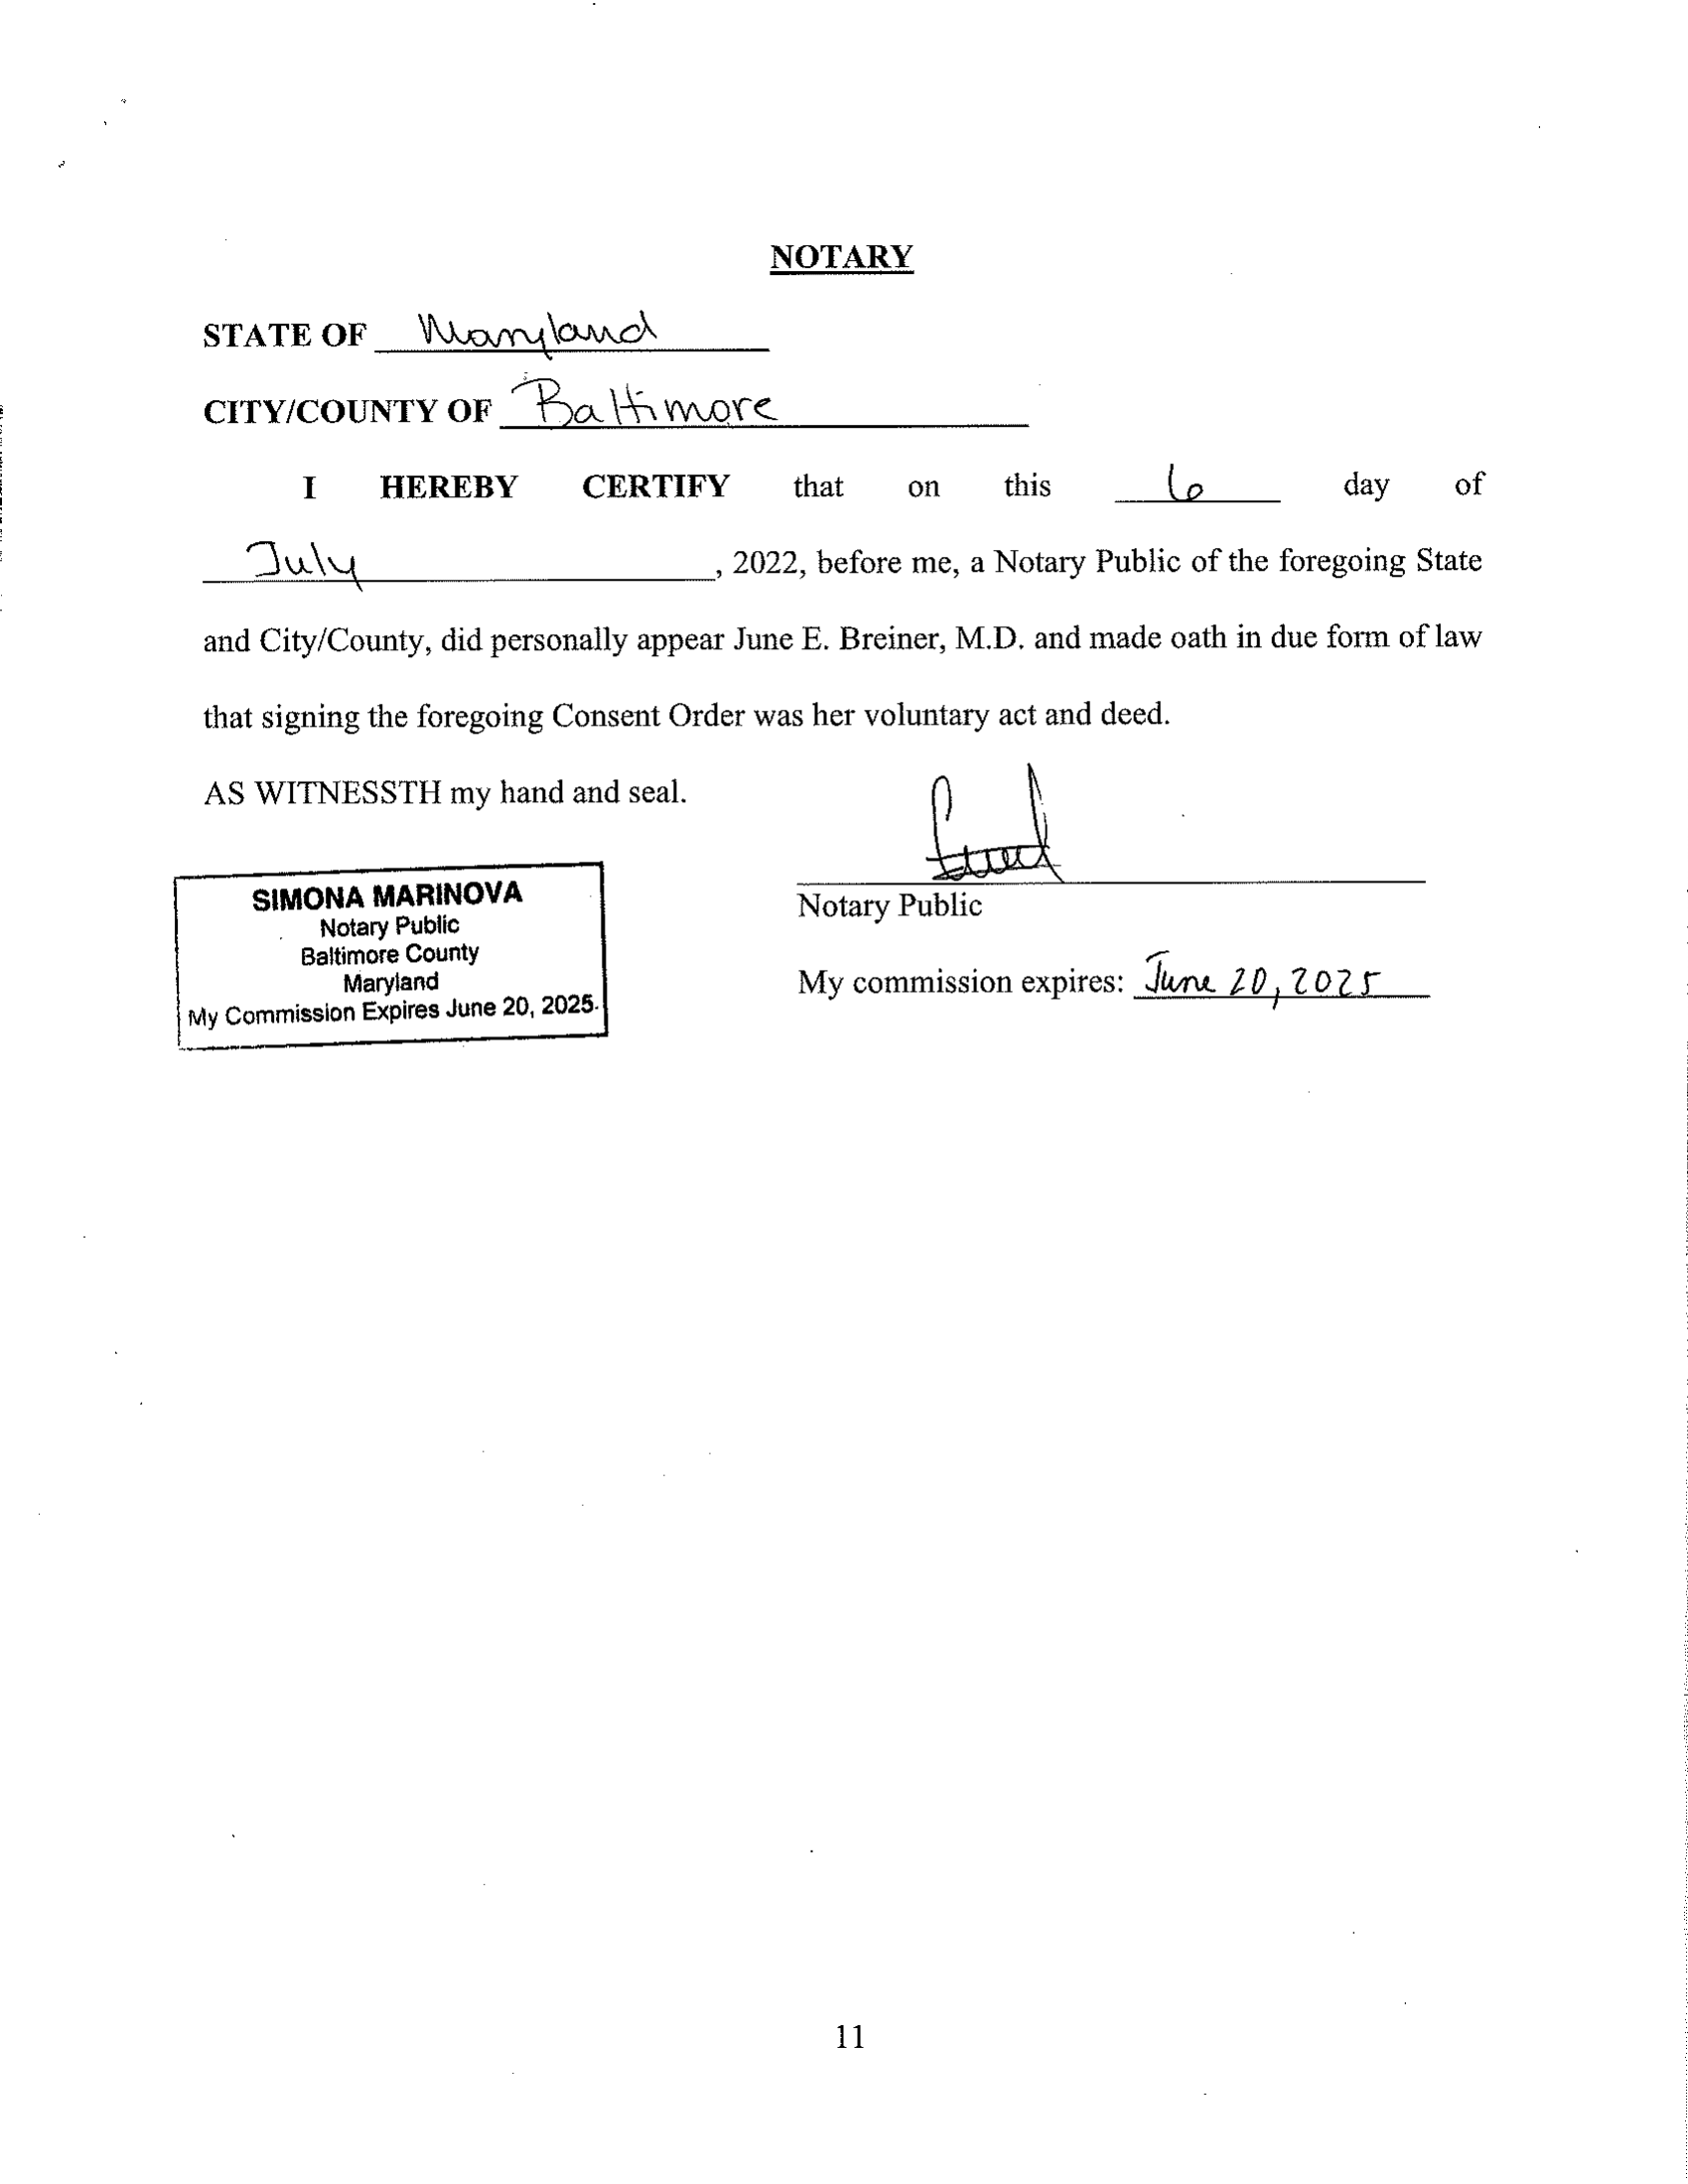 NOTARY
STATE OF Maryland
CITY/COUNTY OF Baltimore
I HEREBY CERTIFY that on this 6 day of
July, 2022, before me, a Notary Public of the foregoing State
and City/County, did personally appear June E. Breiner, M.D. and made oath in due form of law
that signing the foregoing Consent Order was her voluntary act and deed.
AS WITNESSTH my hand and seal.
SIMONA MARINOVA
Notary Public
Baltimore County
Maryland
My Commission Expires June 20, 2025.
Notary Public
My commission expires: June 20, 2025
11